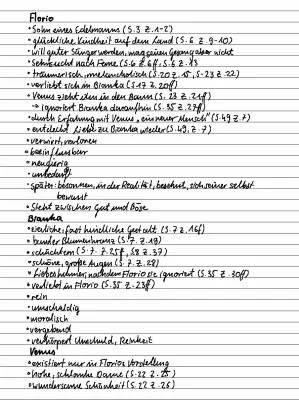 Florio
• Sohn eines Edelmanns (S.3 Z.1-2)
• glückliche Kindheit auf dem Land (S.6 Z.9-10)
• will guter Sänger werden, mag seinen Gesang aber nicht
• Sehnsucht nach Ferne (S.6 Z.6ff, S.6 Z.13
• träumerisch, melancholisch (S.20 Z.15, S.23 Z.22)
• verliebt sich in Bianka (S.17 Z.20ff)
• Venus zieht ihn in den Bann (S.23 Z.21ff)
→ ignoriert Bianka daraufhin (S.35 Z.27ff)
• durch Erfahrung mit Venus „ein neuer Mensch" (S.49 Z.7)
• entdeckt Liebe zu Bianka wieder (S.49, Z.7)
• verwirrt, verloren
• beeinflussbar
• neugierig
• unbedarft
• später: besonnen, in der Realität, bekehrt, sich seiner selbst
bewusst
• Steht zwischen Gut und Böse
Bianka
• zierliche, fast kindliche Gestalt (S.7 Z.16f)
• bunter Blumenkranz (S.7 Z.19)
• schüchtern (S.7 Z.25f, S8 Z.37)
• schöne, große Augen (S.7 Z.28)
• Liebeskummer, nachdem Florio sie ignoriert (S.35 Z.30ff)
• verliebt in Florio (S.35 Z.23ff)
• rein
• unschuldig
• moralisch
• vergebend
• verkörpert Unschuld, Reinheit
Venus
• existiert nur in Florios Vorstellung
• hohe, schlanke Dame (S.22 Z.25)
• wundersame Schönheit (S.22 Z.26)